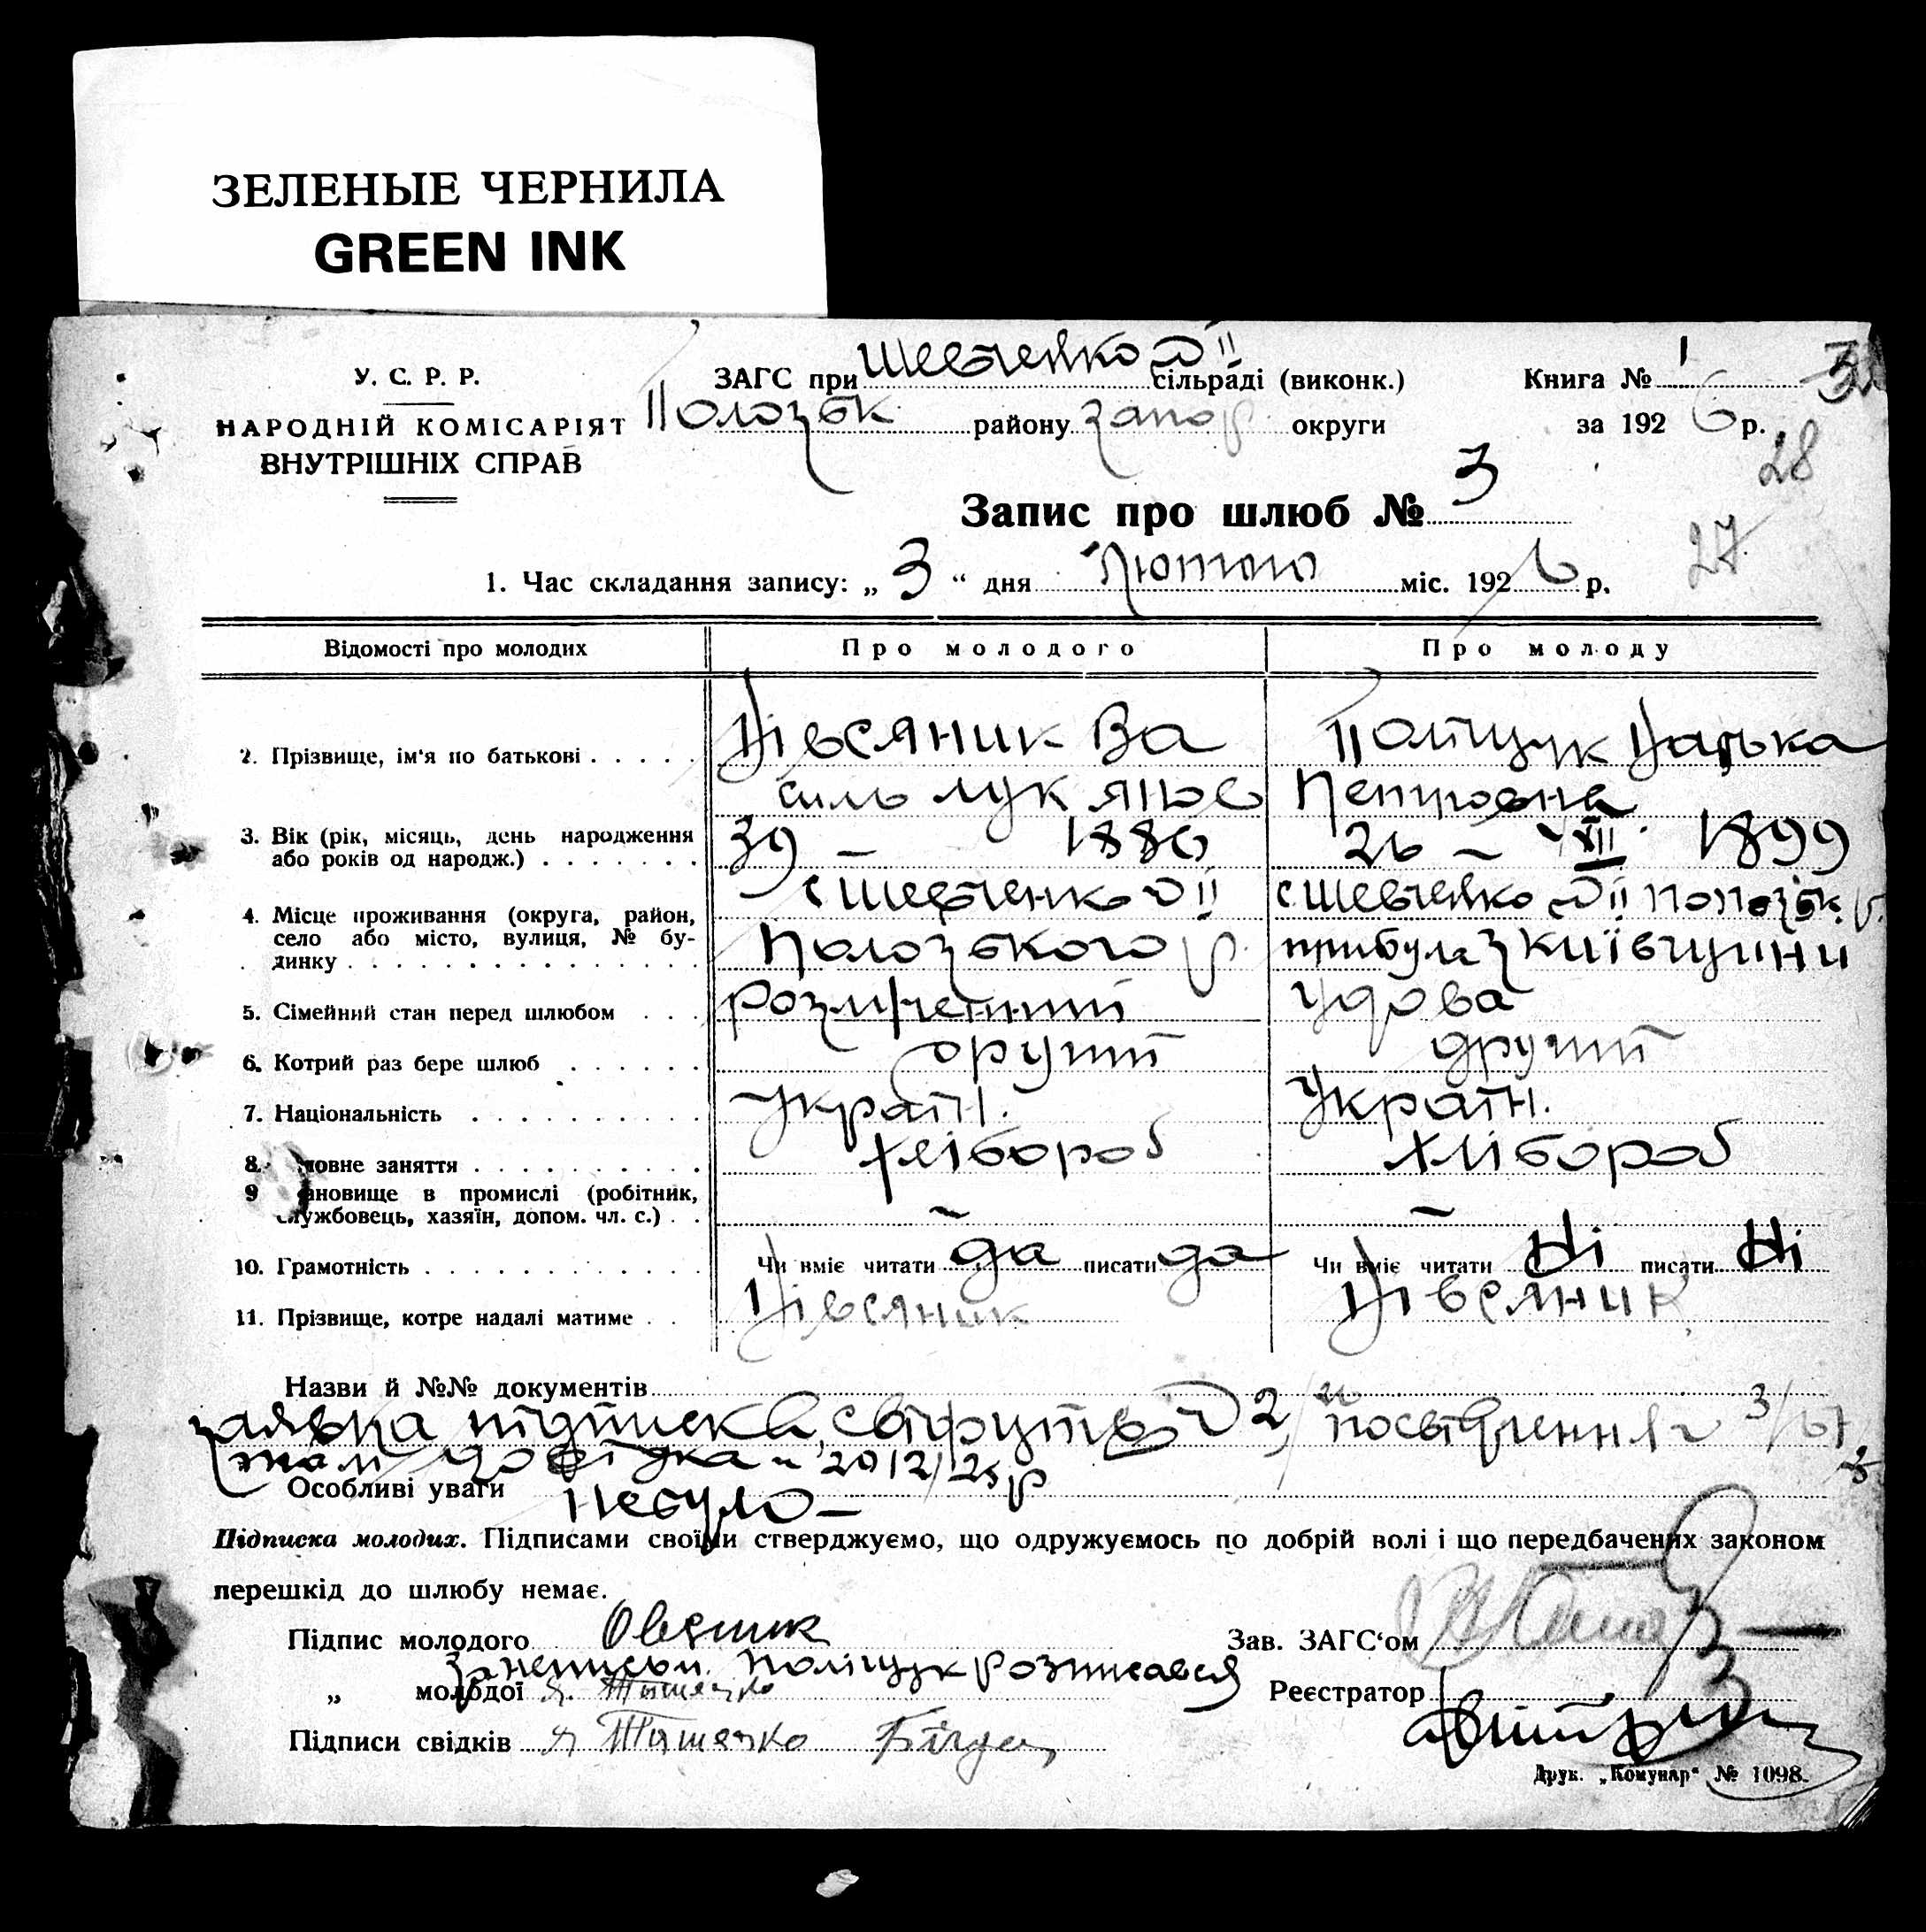 ЗЕЛЕНЫЕ ЧЕРНИЛА
GREEN INK
У. С. Р. Р.
НАРОДНІЙ КОМІСАРІЯТ
ВНУТРІШНІХ СПРАВ
ЗАГС при Шевченко сільраді (виконк.)
Полозьк. району Запор. округи
Книга № 1
за 1926 р.
28
27
Запис про шлюб № 3
1. Час складання запису: „ 3 “ дня Лютого міс. 1926 р.
Відомості про молодих Про молодого Про молоду
2. Прізвище, ім'я по батькові . . . . . Вівсяник Ва Поліщук Дарька
силь Лукянов Петровна
3. Вік (рік, місяць, день народження 39 – 1886 26 – XII 1899
або років од народж.) . . . . . . .
4. Місце проживання (округа, район, с Шевченко II с Шевченко II Полозьк. р.
село або місто, вулиця, № бу- Полозького р. прибула з Київщини
динку . . . . . . . . . . . . . . .
5. Сімейний стан перед шлюбом . . . Удова
6. Котрий раз бере шлюб . . . . . . другий другий
7. Національність . . . . . . . . . Україн. Україн.
8. ловне заняття . . . . . . . . . . хлібороб хлібороб
9 ановище в промислі (робітник, – –
службовець, хазяїн, допом. чл. с.) . .
10. Грамотність . . . . . . . . . . . . Чи вміє читати да писати да Чи вміє читати Ні писати Ні
11. Прізвище, котре надалі матиме . . Вівсяник Вівсяник
Назви й №№ документів
заявка підписка, 2 посвідчення 3/67
довідка 29/2/25 р
Особливі уваги небуло –
Підписка молодих. Підписами своїми стверджуємо, що одружуємось по добрій волі і що передбачених законом
перешкід до шлюбу немає.
Підпис молодого Овсяник Зав. ЗАГС'ом
за неписьм. Поліщук розписався
„ молодої Я. Тимченко Реєстратор
Підписи свідків Я Тимченко
Друк. „Комунар“ № 1098.